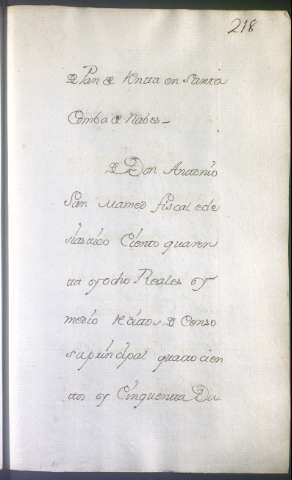 218
Pan de Renta en Santa
Comba de Naves
D Don Antonio
San Mamed fiscal ecle
siastico Ciento quaren
ta y ocho Reales y
medio Reditos D Censo
su prinzipal quatrocien
tos y Cinquenta Du